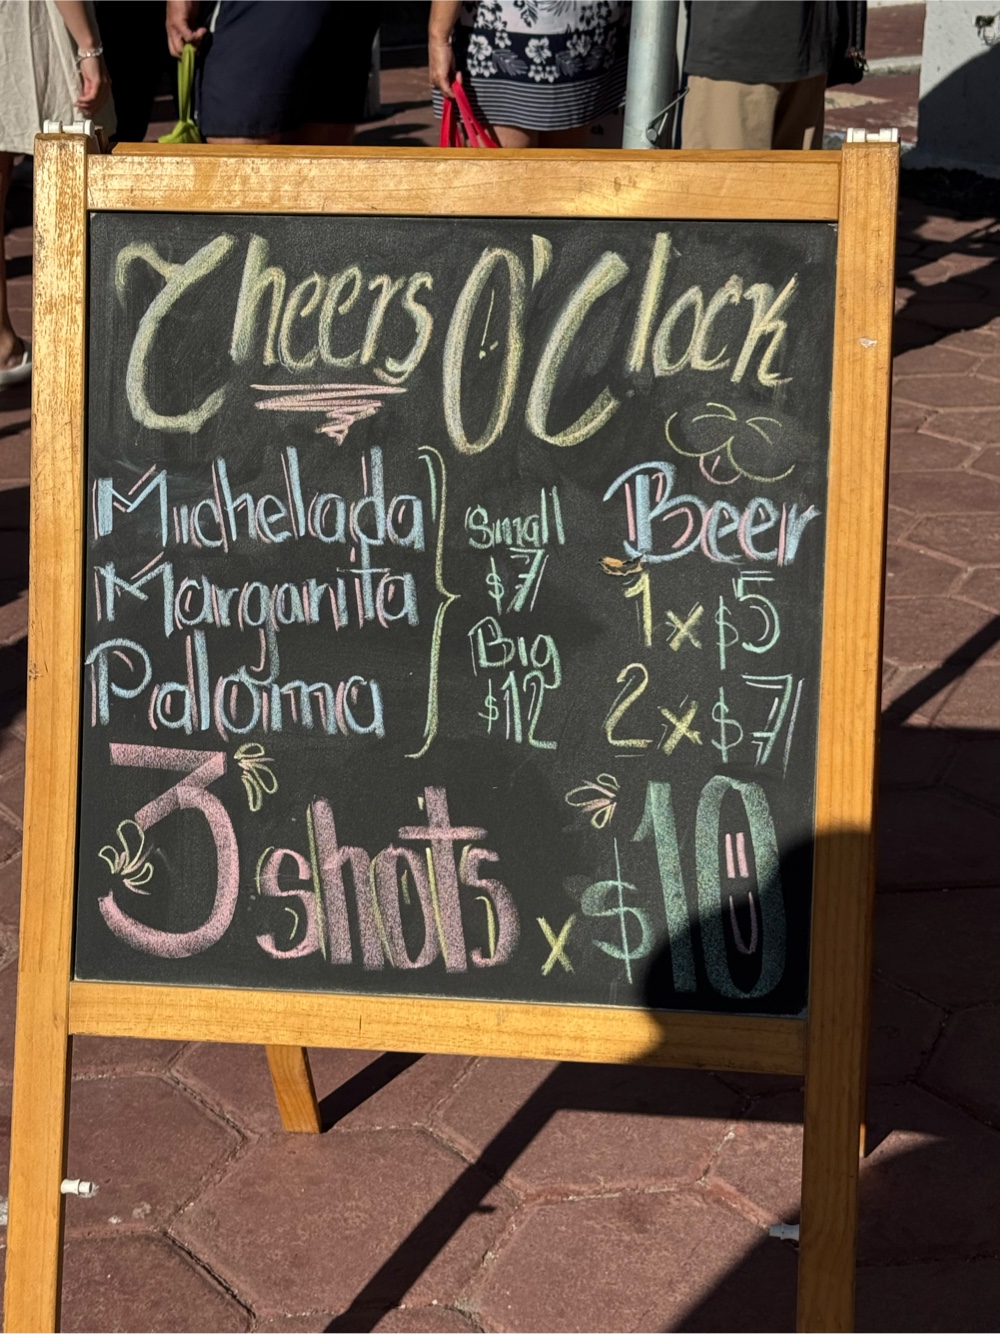 Cheers O'Clock
Michelada
Margarita
Paloma
Small
$7
Big
$12
Beer
1 x $5
2 x $7
3 shots x $10